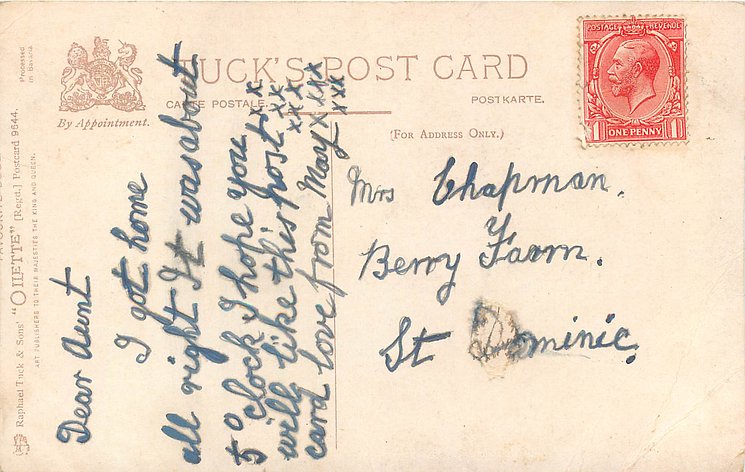 TUCK'S POST CARD
CARTE POSTALE.
POSTKARTE.
By Appointment.
(FOR ADDRESS ONLY.)
Processed
in Bavaria
Raphael Tuck & Sons' "OILETTE" [Regd.] Postcard 9644.
ART PUBLISHERS TO THEIR MAJESTIES THE KING AND QUEEN.
POSTAGE REVENUE
1 ONE PENNY 1
Dear Aunt
I got home
all right It was about
5 o'clock I hope you
will like this post xx
card love from May xxxx
xx
xxx
xxx
Mrs Chapman.
Berry Farm.
St Dominic.